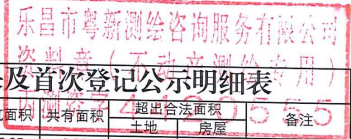 乐昌市粤新测绘咨询服务有限公司
资料章（不动产测绘专用）
及首次登记公示明细表
面积 共有面积 超出合法面积 备注
土地 房屋